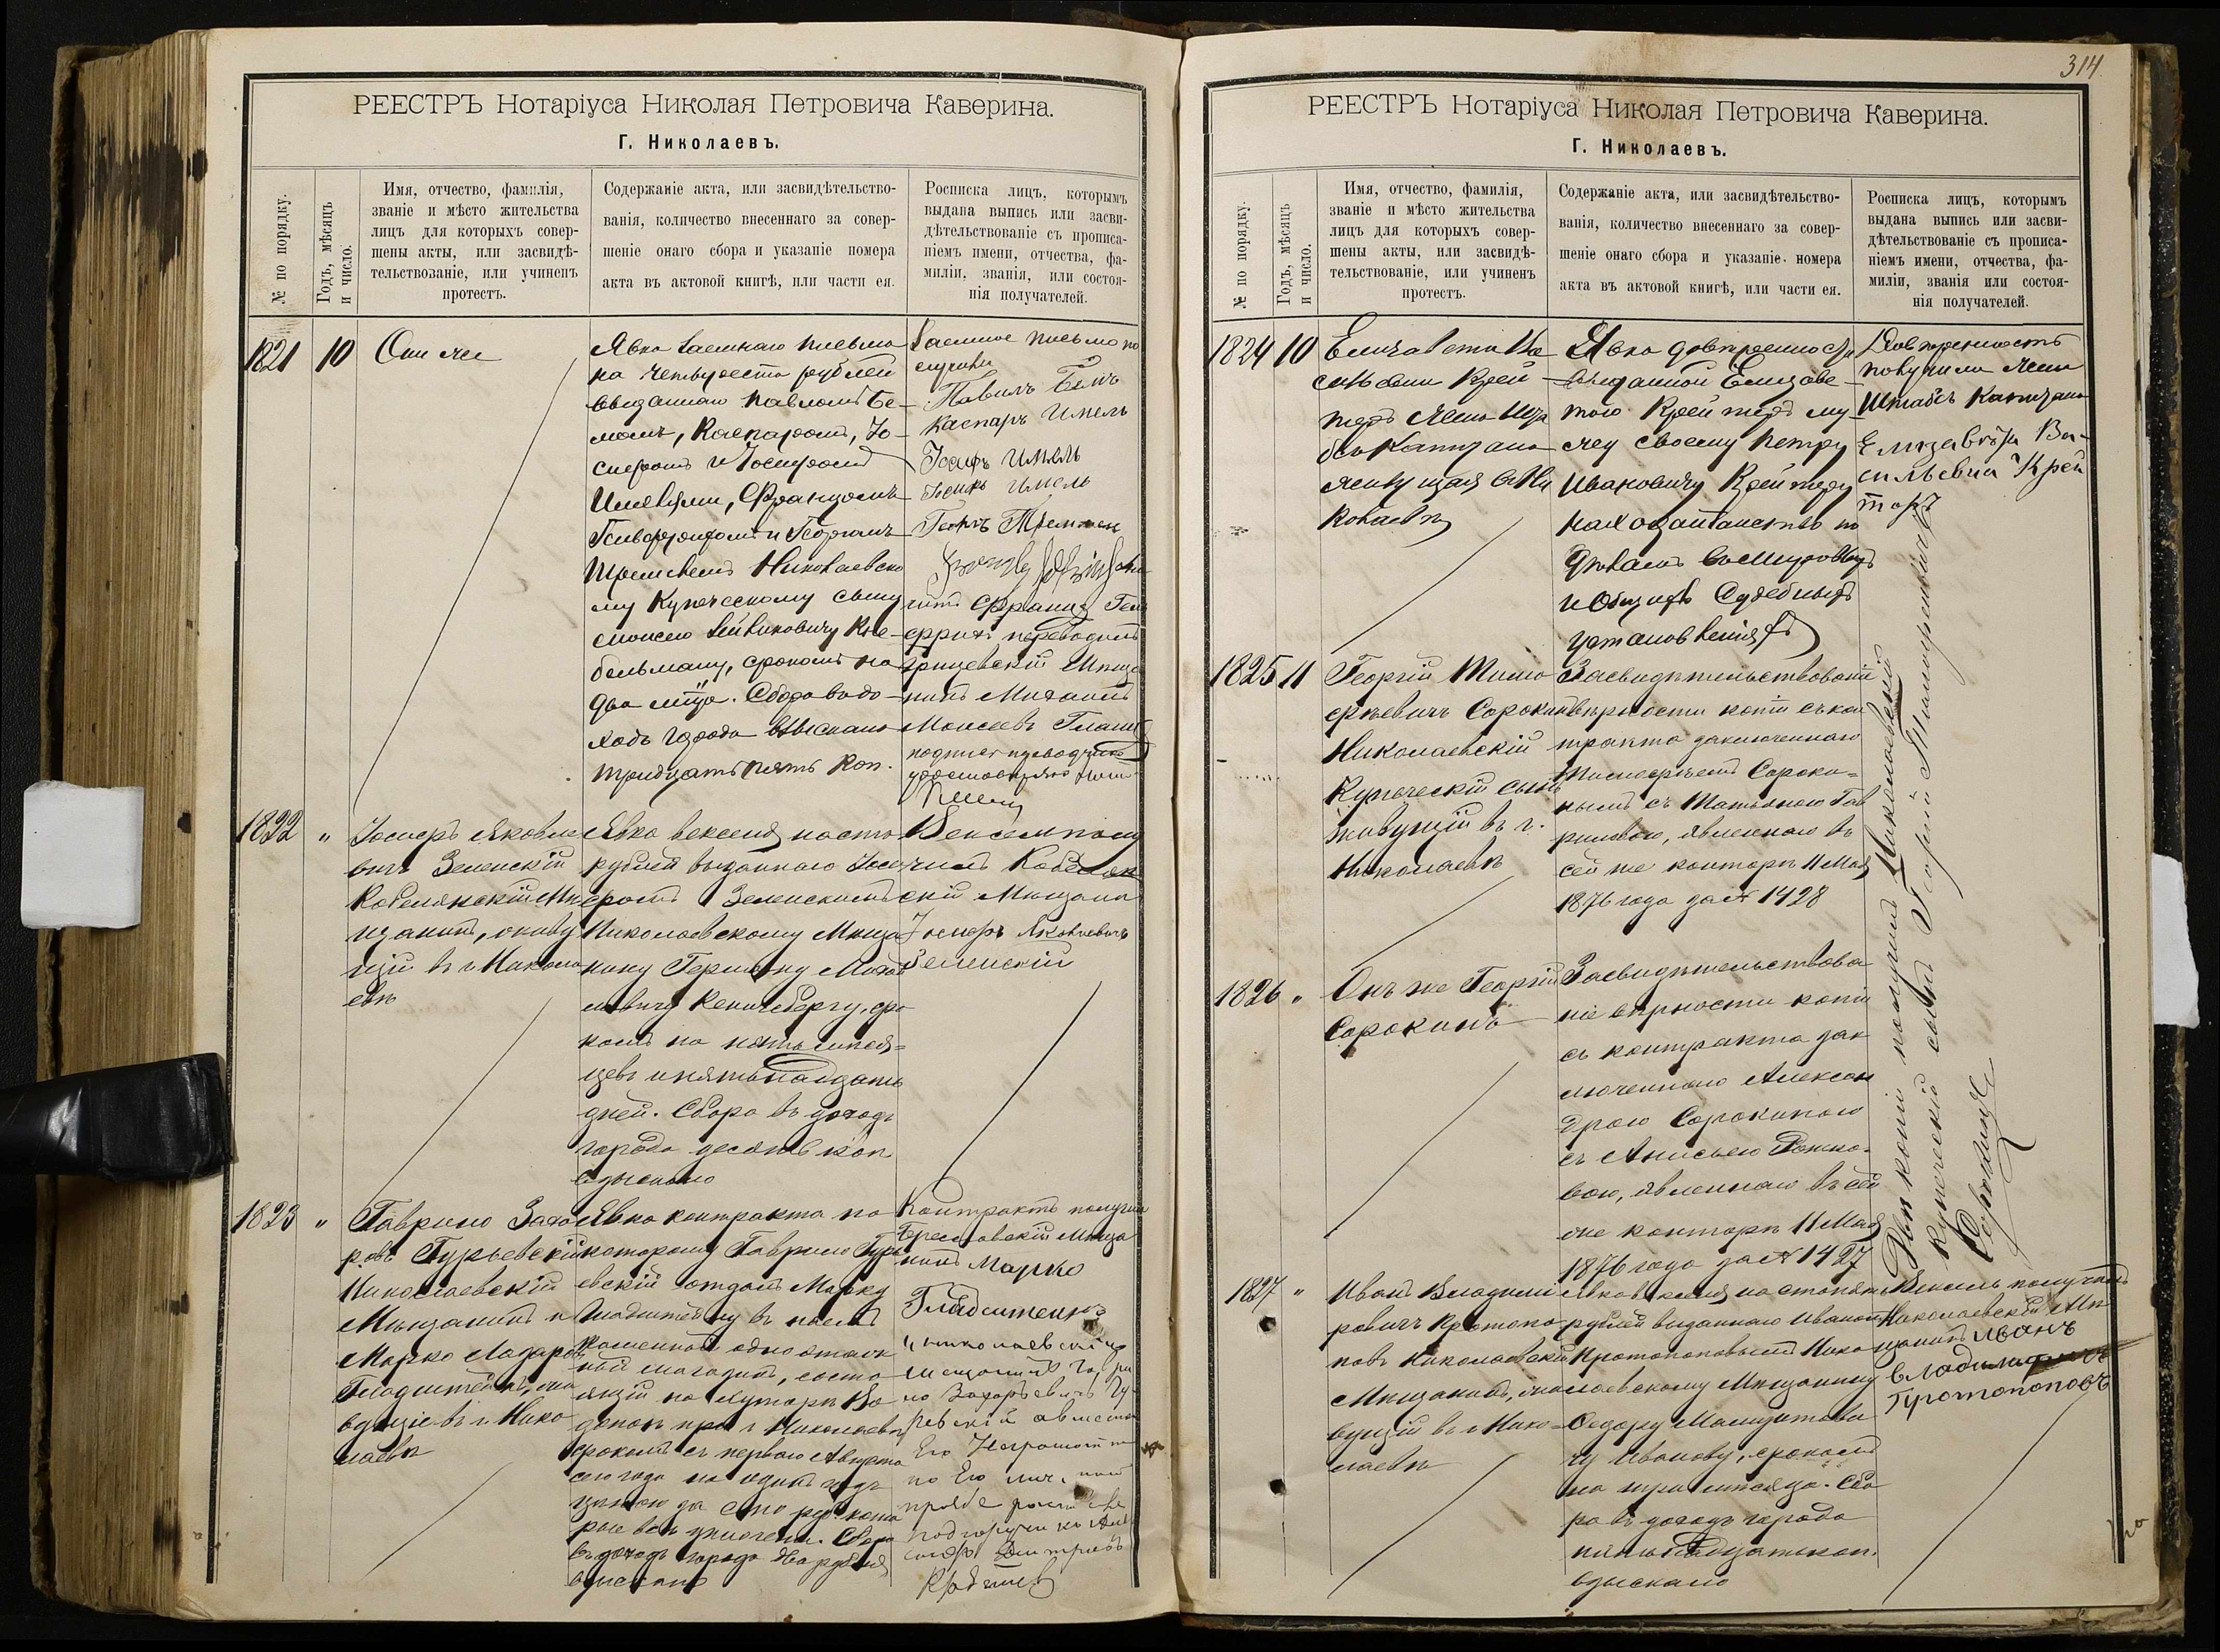 РЕЕСТРЪ Нотаріуса Николая Петровича Каверина.
Г. Николаевъ.
№ по порядку.
Годъ, мѣсяцъ
и число.
Имя, отчество, фамилія,
званіе и мѣсто жительства
лицъ для которыхъ совер-
шены акты, или засвидѣ-
тельствованіе, или учиненъ
протестъ.
Содержаніе акта, или засвидѣтельство-
ванія, количество внесеннаго за совер-
шеніе онаго сбора и указаніе номера
акта въ актовой книгѣ, или части ея.
Росписка лицъ, которымъ
выдана выпись или засви-
дѣтельствованіе съ прописа-
ніемъ имени, отчества, фа-
миліи, званія, или состоя-
нія получателей.
1821
10
Они же
Явка заемнаго письма
на четыреста рублей
выданнаго Павломъ Бе-
момъ, Каспаромъ, Іо-
сифомъ и Іосифомъ
Имелями, Францомъ
и Георгомъ
Николаевско
му Купеческому сыну
бельману, срокомъ на
два мѣца. Сбора въ до-
ходъ города взыскано
тридцать пять коп.
Заемное письмо по
лучили
Павилъ Бемъ
Каспаръ Имель
Іосифъ Имель
Іосифъ Имель
Георгъ
Францъ
переводилъ
Мѣща
нинъ Михаилъ
Моисеевъ
подпись переводчика
1822
"
Іосифъ Яковле
вичъ Зеленскій
Кобелякскій Мѣ
щанинъ, живу
щій въ г. Никола
евѣ
Явка векселя на сто
рублей выданнаго Іоси
фомъ Зеленскимъ
Николаевскому Мѣща
нину Герману
Кенигсбергу, сро
комъ на пять мѣся-
цевъ и пятьнадцать
дней. Сбора въ доходъ
города десять коп
взыскано
Вексель полу
чилъ Кобеляк
скій Мѣщанин
Іосифъ Яковлевичъ
Зеленскій
1823
"
Гаврило Заха
ровъ Гурьевскій
Николаевскій
Мѣщанинъ и
Марко Лазаровъ
Гладштейнъ, жи
вущіе въ г. Нико
лаевѣ
Явка контракта по
которому Гаврило Гурь
евскій отдалъ Марку
Гладштейну въ наемъ
каменный одноэтаж
ный магазинъ, состо
ящій на хуторѣ Во
допой при г. Николаевѣ
срокомъ съ перваго Августа
сего года на одинъ годъ
цѣною за сто руб. кото
рые всѣ уплочены. Сбора
въ доходъ города два рубля
взыскано
Контрактъ получили
Мѣща
нинъ Марко
Гладштейнъ
и николаевскій
мещанинъ Гаври
ло Захарьевичъ Гу
ревскій а вместо
Его Неграмотн
по Его личной
просбе росписа
Дмитриевъ
314.
РЕЕСТРЪ Нотаріуса Николая Петровича Каверина.
Г. Николаевъ.
№ по порядку.
Годъ, мѣсяцъ
и число.
Имя, отчество, фамилія,
званіе и мѣсто жительства
лицъ для которыхъ совер-
шены акты, или засвидѣ-
тельствованіе, или учиненъ
протестъ.
Содержаніе акта, или засвидѣтельство-
ванія, количество внесеннаго за совер-
шеніе онаго сбора и указаніе номера
акта въ актовой книгѣ, или части ея.
Росписка лицъ, которымъ
выдана выпись или засви-
дѣтельствованіе съ прописа-
ніемъ имени, отчества, фа-
миліи, званія или состоя-
нія получателей.
1824
10
Елизавета Ва
сильевна Крей
теръ Жена Шта
бсъ Капитана
живущая въ Ни
колаевѣ
Явка довѣренности
выданной Елизаве-
тою Крейтеръ му-
жу своему Петру
Ивановичу Крейтеру
на хозяйничество по
дѣламъ въ Мировыхъ
и Общихъ Судебныхъ
установленіяхъ
Довѣренность
получила Жена
Штабсъ Капитана
Елизавета Ва-
сильевна Крей
теръ
1825
11
Георгій Тимо
фѣевичъ Сорокинъ
Николаевскій
Купеческій сынъ
живущій въ г.
Николаевѣ
Засвидѣтельствованіе
вѣрности копіи съ кон
тракта заключеннаго
Тимофѣемъ Сороки-
нымъ съ Татьяною Гав
риловою, явленнаго въ
сей же конторѣ 11 Мая
1876 года за № 1428
1826
"
Онъ же Георгій
Сорокинъ
Засвидѣтельствова
ніе вѣрности копіи
съ контракта зак
люченнаго Алексан
дрою Сорокиною
съ Анисьею
вою, явленнаго въ сей
же конторѣ 11 Мая
1876 года за № 1427
Двѣ копіи получилъ Николаевскій
купеческій сынъ Георгій Тимофеевичъ
Сорокинъ
1827
"
Иванъ Владими
ровичъ Протопо
повъ Николаевскій
Мѣщанинъ, жи
вущій въ г. Нико-
лаевѣ
Явка векселя на сто пять
рублей выданнаго Иваномъ
Протопоповымъ Нико
лаевскому Мѣщанину
Федору
чу Иванову, срокомъ
на три мѣсяца. Сбо
ра въ доходъ города
пятьнадцать коп.
взыскано
Вексель получилъ
Николаевскій Мѣ
щанинъ Иванъ
Владимировичъ
Протопоповъ